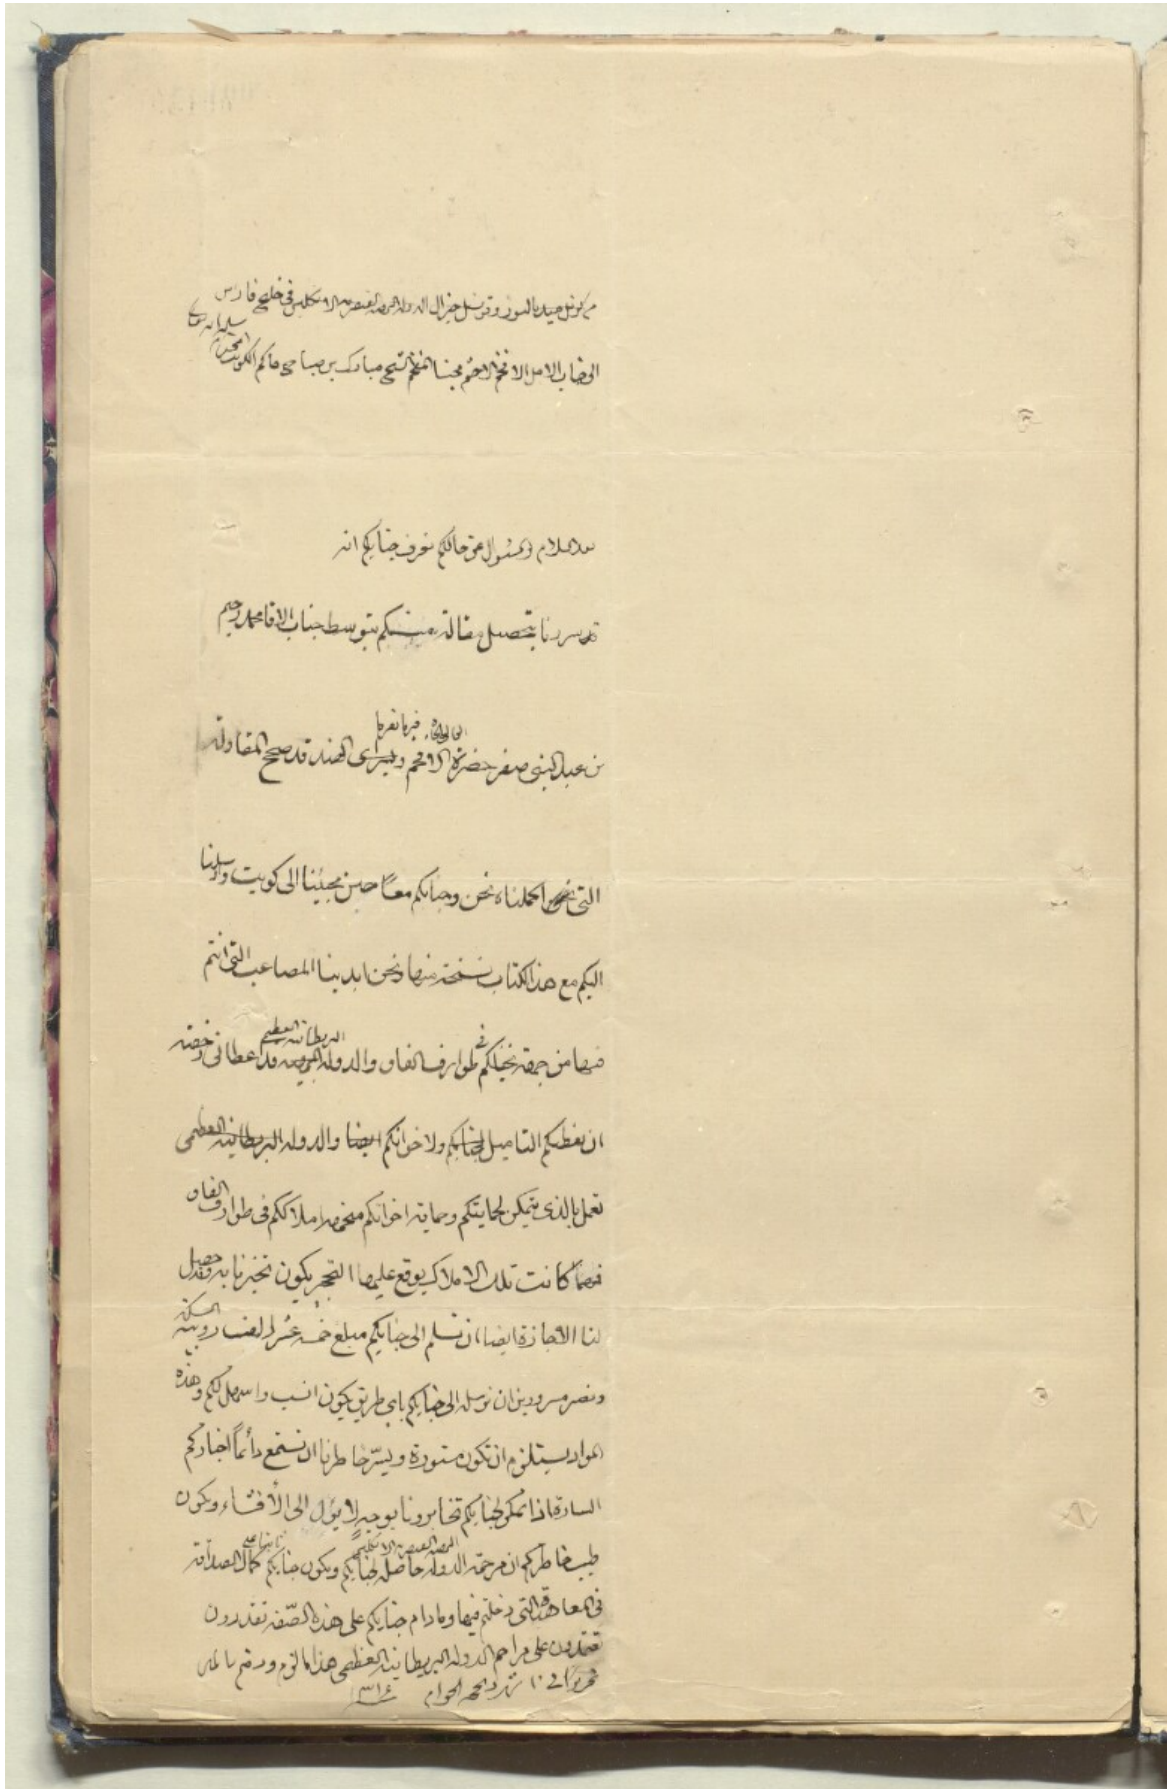 من كرنل ميد باليوز و قونسل جنرال الدوله البهيه القيصريه الانكليس فى خليج فارس
الى جناب الاجل الافخم الاحشم محبنا المفخم الشيخ مبارك بن صباح حاكم الكويت المحترم
سلمه الله تعالى
بعد السلام و السئوال عن حالكم نعرف جنابكم انه
قد سررنا بتحصيل مقالة بتوسط جناب الاقا محمد رحيم
بن عبد النبي صفر حضرة الافخم ويسراى الهند قد صحح المقاولة
فرمانفرما
التى اكملناه نحن وجنابكم معاً حين مجيئنا الى كويت وارسلنا
اليكم مع هذا الكتاب نسخة منها ونحن ابدينا المصاعب التى انتم
فيها من جهة نخيلكم فى طوارف الفاو والدوله البهيه قد اعطانى رخصة
البريطانيه العظمى
ان نعطيكم التاميل لجنابكم ولاخوانكم ايضا والدوله البريطانيه العظمى
تعمل بالذى يتمكن لحمايتكم وحماية اخوانكم املاككم فى طوارف الفاو
فمهما كانت تلك الاملاك يوقع عليها التجبر يكون تخبرنا به وقد حصل
لنا الاجازة ايضا ان نسلم الى جنابكم مبلغ خمسة عشر الف روبيه
ونصير مسرورين ان نرسله الى جنابكم باى طريق يكون انسب واسهل لكم وهذه
المواد يستلزم ان تكون مستورة ويسرّ خاطرنا ان نستمع دائماً اخباركم
السارة اذا يمكن لجنابكم تخابرونا بوجه لا يؤل الى الأفشاء ويكون
طيب خاطركم ان مرحمة الدوله حاصلة لجنابكم ويكون جنابكم كمال الصداقة
البهيه القيصريه الانكليس
فى المعاهدة التى دخلتم فيها ومادام جنابكم على هذه الصّفة تقدرون
تعتمدون على مراحم الدوله البريطانيه العظمى هذا ما لزم ودمتم سالمين
تحريرا فى ١٠ شهر ذى الحجه الحرام ١٣١٦